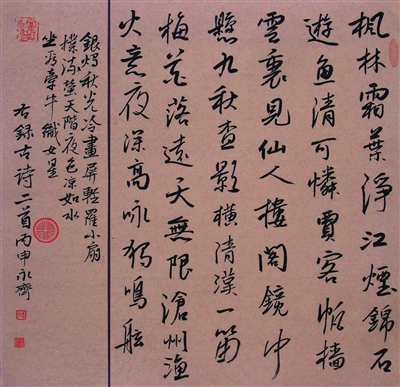 楓林霜葉淨江煙錦石
遊魚清可憐賈客帆檣
雲裏見仙人樓閣鏡中
懸九秋查影橫清漢一笛
梅花落遠天無限滄州漁
父意夜深高咏獨鳴舷
銀燭秋光冷畫屏輕羅小扇
撲流螢天階夜色涼如水
坐看牽牛織女星
右錄古詩二首丙申永齊